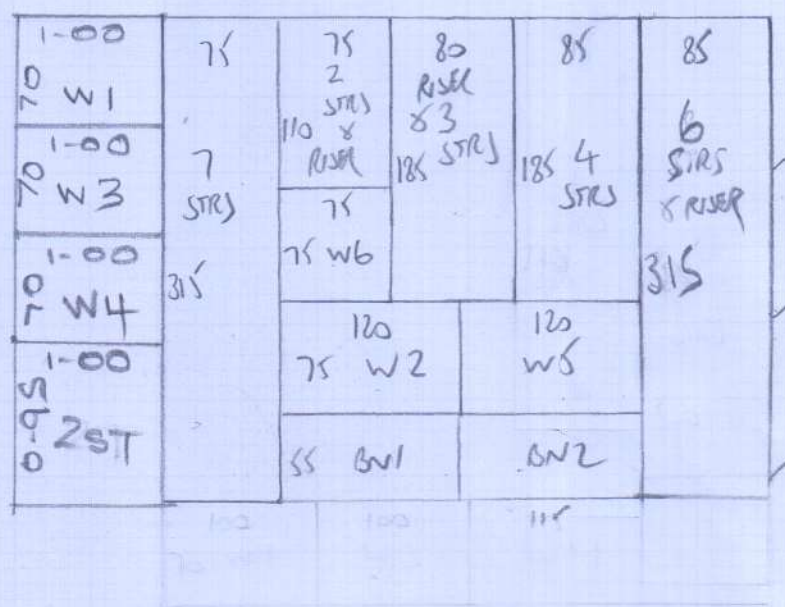 1-00
70 W1
1-00
70 W3
1-00
70 W4
1-00
0-95 2ST
75
7
STRS
315
75
2
STRS
110 &
RISER
75
75 W6
80
RISER
& 3
STRS
185
85
185 4
STRS
85
6
STRS
& RISER
315
120
75 W2
120
W5
55 BN1
BN2
100
100
115